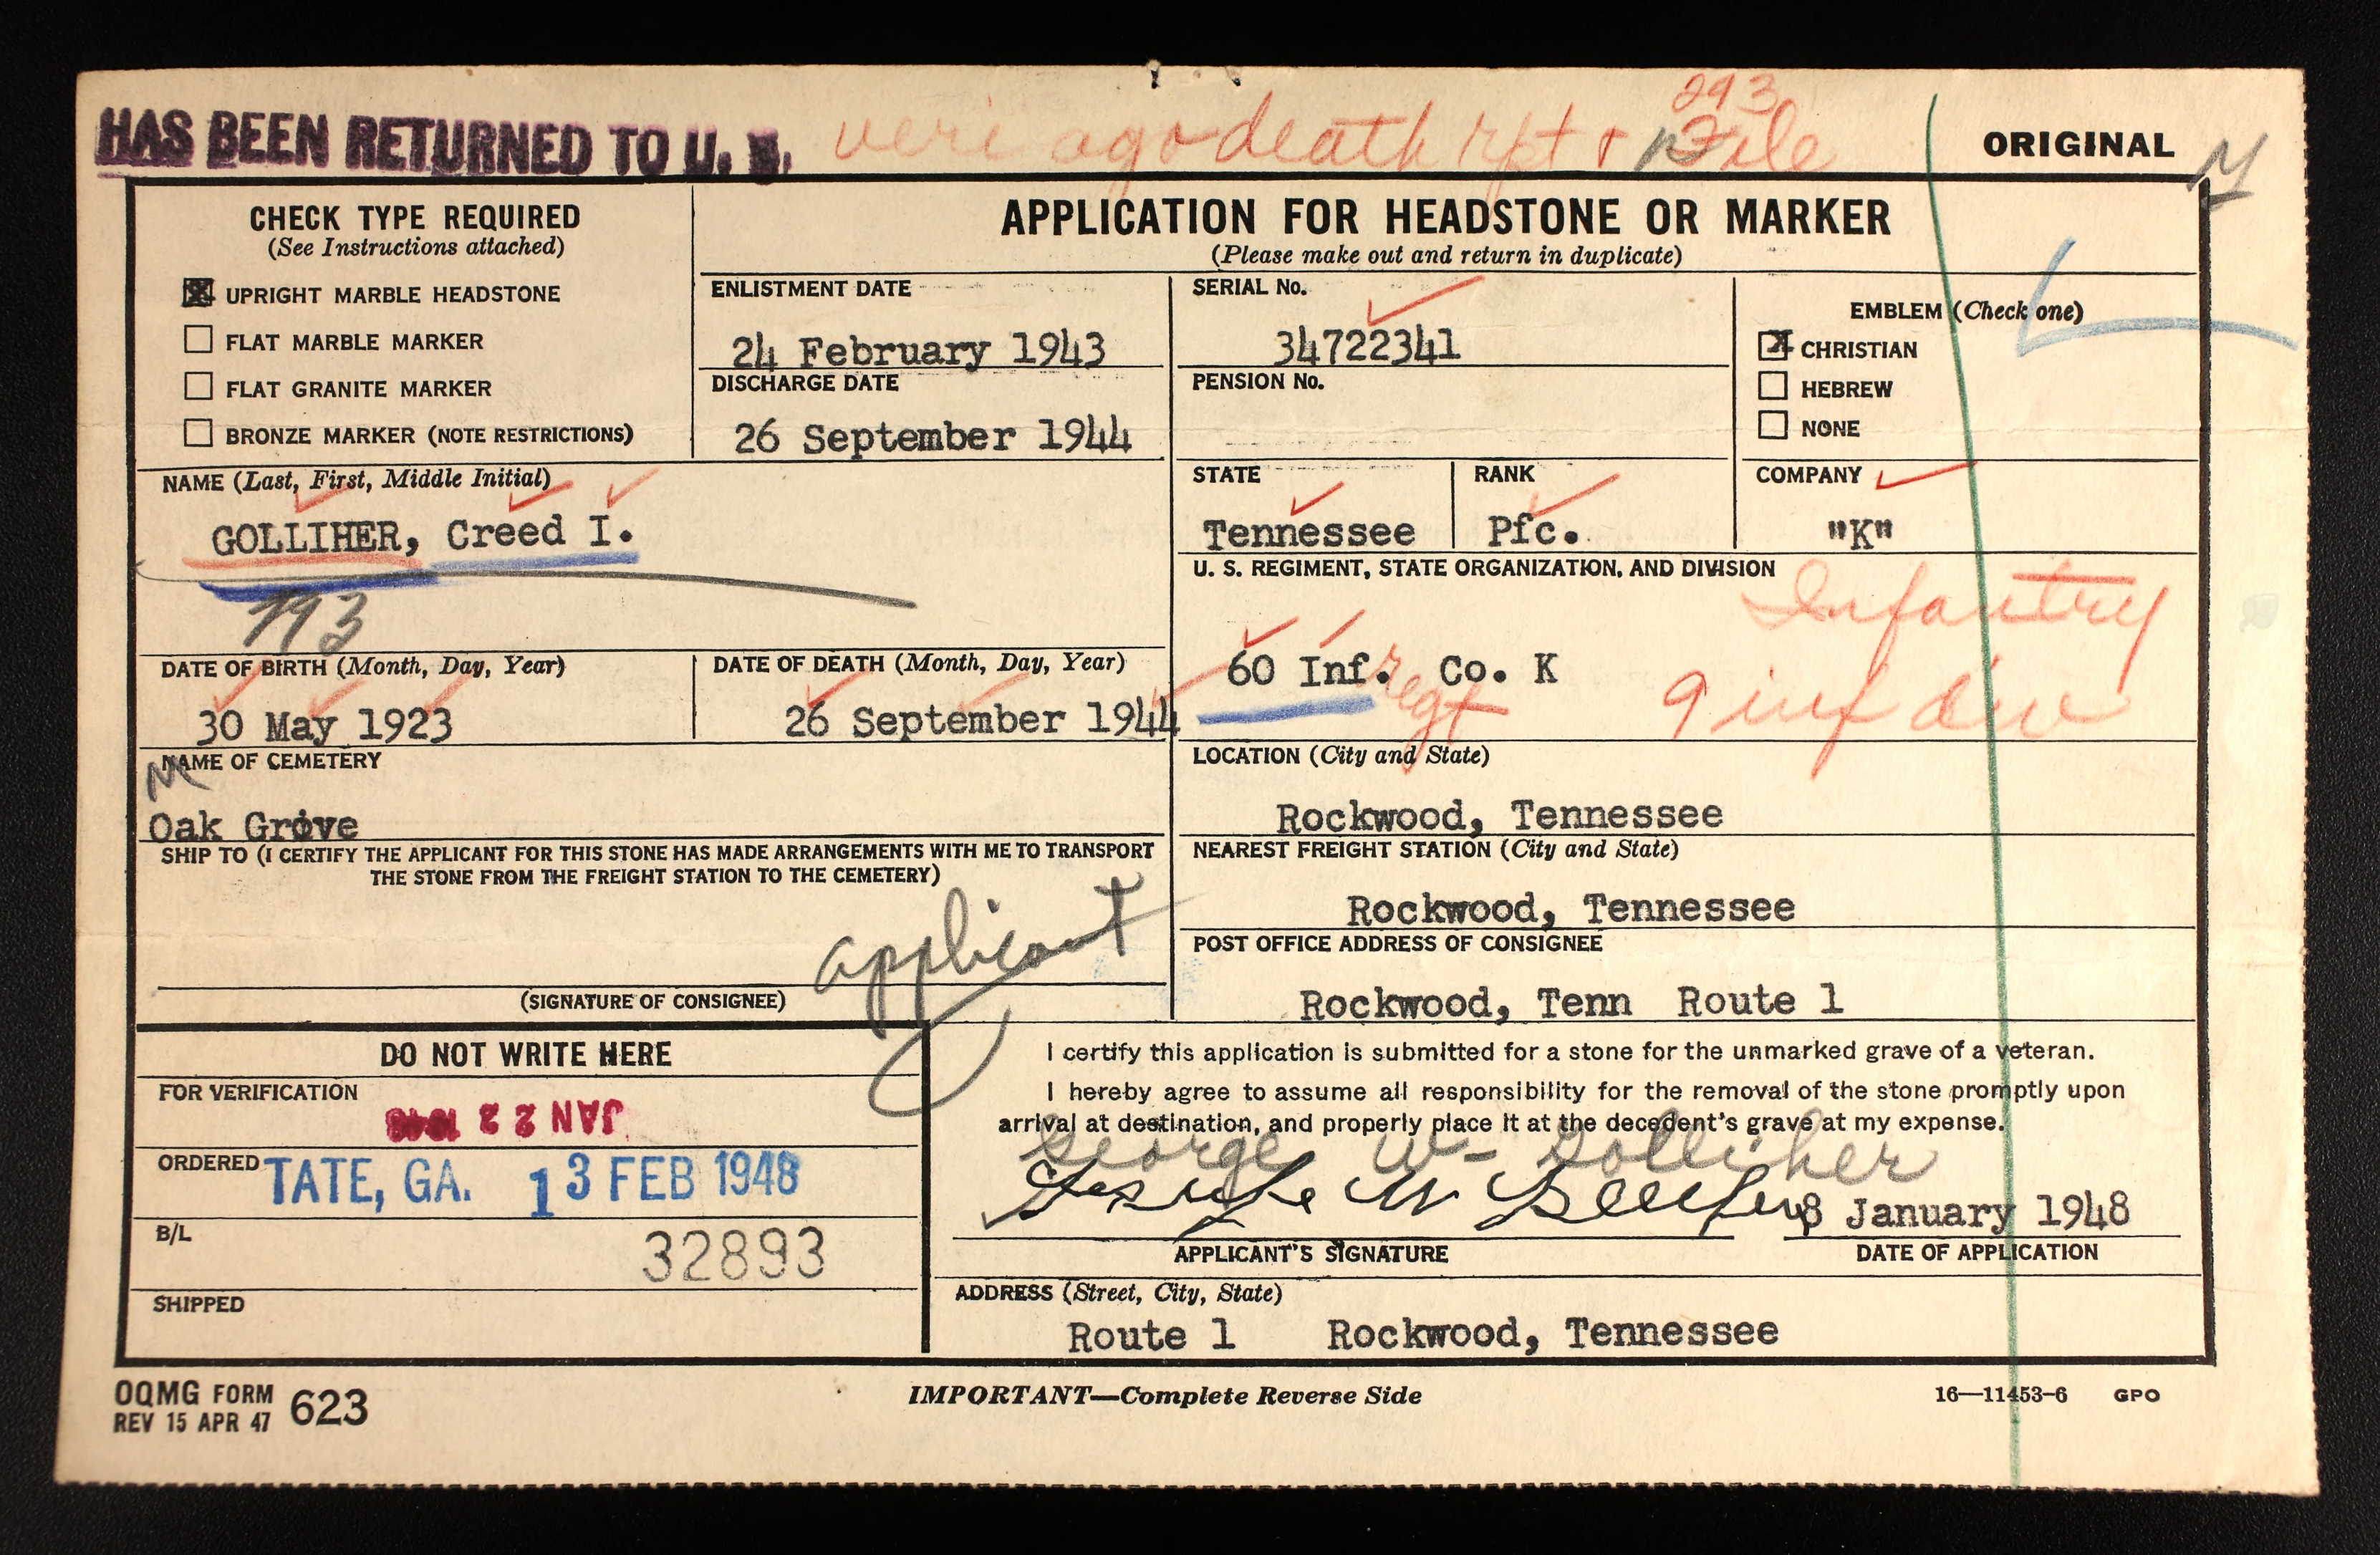 HAS BEEN RETURNED TO U. S.
veri ago death rpt + 293 File
ORIGINAL
M
CHECK TYPE REQUIRED
(See Instructions attached)
UPRIGHT MARBLE HEADSTONE
FLAT MARBLE MARKER
FLAT GRANITE MARKER
BRONZE MARKER (NOTE RESTRICTIONS)
APPLICATION FOR HEADSTONE OR MARKER
(Please make out and return in duplicate)
ENLISTMENT DATE
24 February 1943
DISCHARGE DATE
26 September 1944
SERIAL No.
34722341
PENSION No.
EMBLEM (Check one)
CHRISTIAN
HEBREW
NONE
NAME (Last, First, Middle Initial)
GOLLIHER, Creed I.
STATE
Tennessee
RANK
Pfc.
COMPANY
"K"
U. S. REGIMENT, STATE ORGANIZATION, AND DIVISION
Infantry
60 Inf. regt Co. K
9 inf div
DATE OF BIRTH (Month, Day, Year)
30 May 1923
DATE OF DEATH (Month, Day, Year)
26 September 1944
NAME OF CEMETERY
Oak Grove
LOCATION (City and State)
Rockwood, Tennessee
SHIP TO (I CERTIFY THE APPLICANT FOR THIS STONE HAS MADE ARRANGEMENTS WITH ME TO TRANSPORT
THE STONE FROM THE FREIGHT STATION TO THE CEMETERY)
applicant
(SIGNATURE OF CONSIGNEE)
NEAREST FREIGHT STATION (City and State)
Rockwood, Tennessee
POST OFFICE ADDRESS OF CONSIGNEE
Rockwood, Tenn Route 1
DO NOT WRITE HERE
FOR VERIFICATION
JAN 22 1948
ORDERED TATE, GA. 13 FEB 1948
B/L
32893
SHIPPED
I certify this application is submitted for a stone for the unmarked grave of a veteran.
I hereby agree to assume all responsibility for the removal of the stone promptly upon
arrival at destination, and properly place it at the decedent's grave at my expense.
George W. Golliher
8 January 1948
APPLICANT'S SIGNATURE
DATE OF APPLICATION
ADDRESS (Street, City, State)
Route 1 Rockwood, Tennessee
OQMG FORM 623
REV 15 APR 47
IMPORTANT—Complete Reverse Side
16—11453-6 GPO